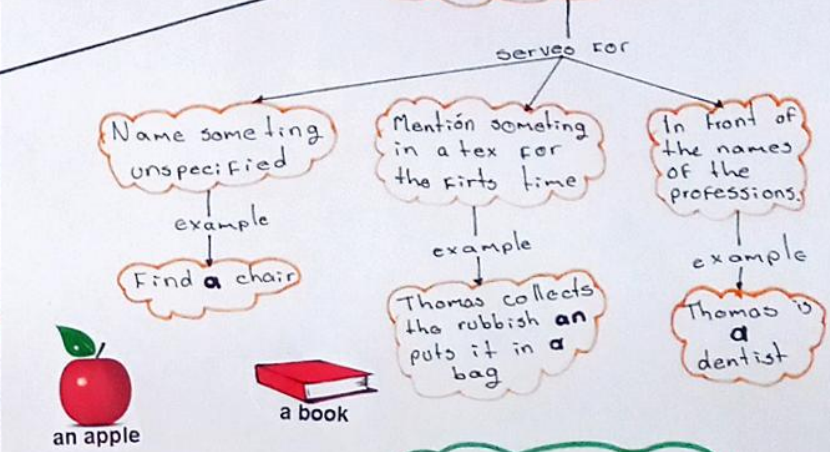 serves for
Name some ting
unspecified
example
Find a chair
Mentión someting
in a tex for
the firts time
example
Thomas collects
the rubbish an
puts it in a
bag
In front of
the names
of the
professions.
example
Thomas is
a
dentist
an apple
a book